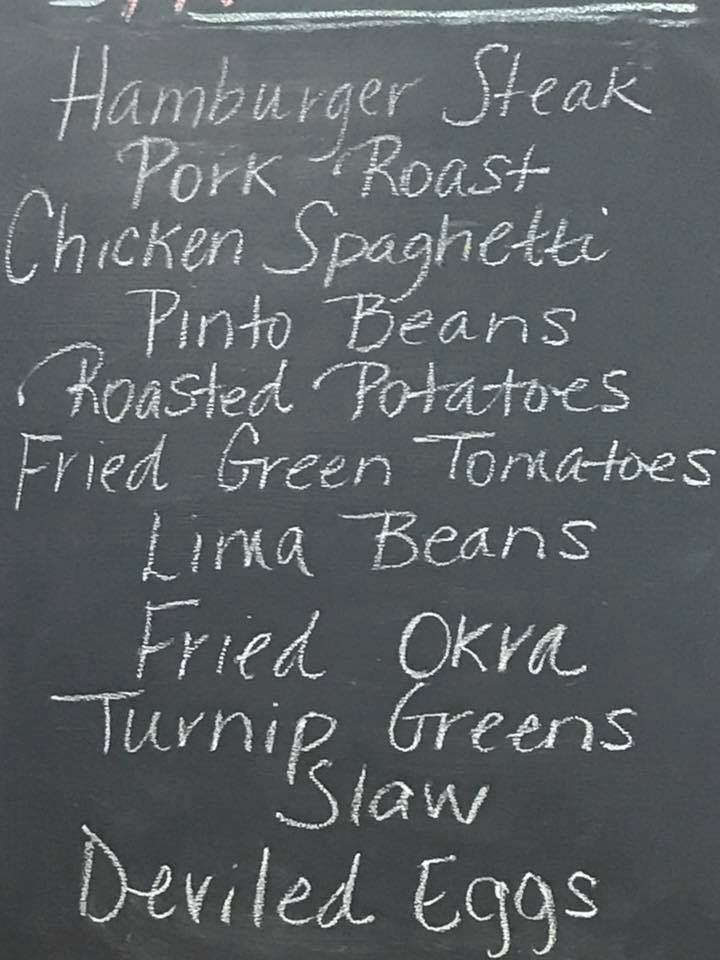 Hamburger Steak
Pork Roast
Chicken Spaghetti
Pinto Beans
Roasted Potatoes
Fried Green Tomatoes
Lima Beans
Fried Okra
Turnip Greens
Slaw
Deviled Eggs